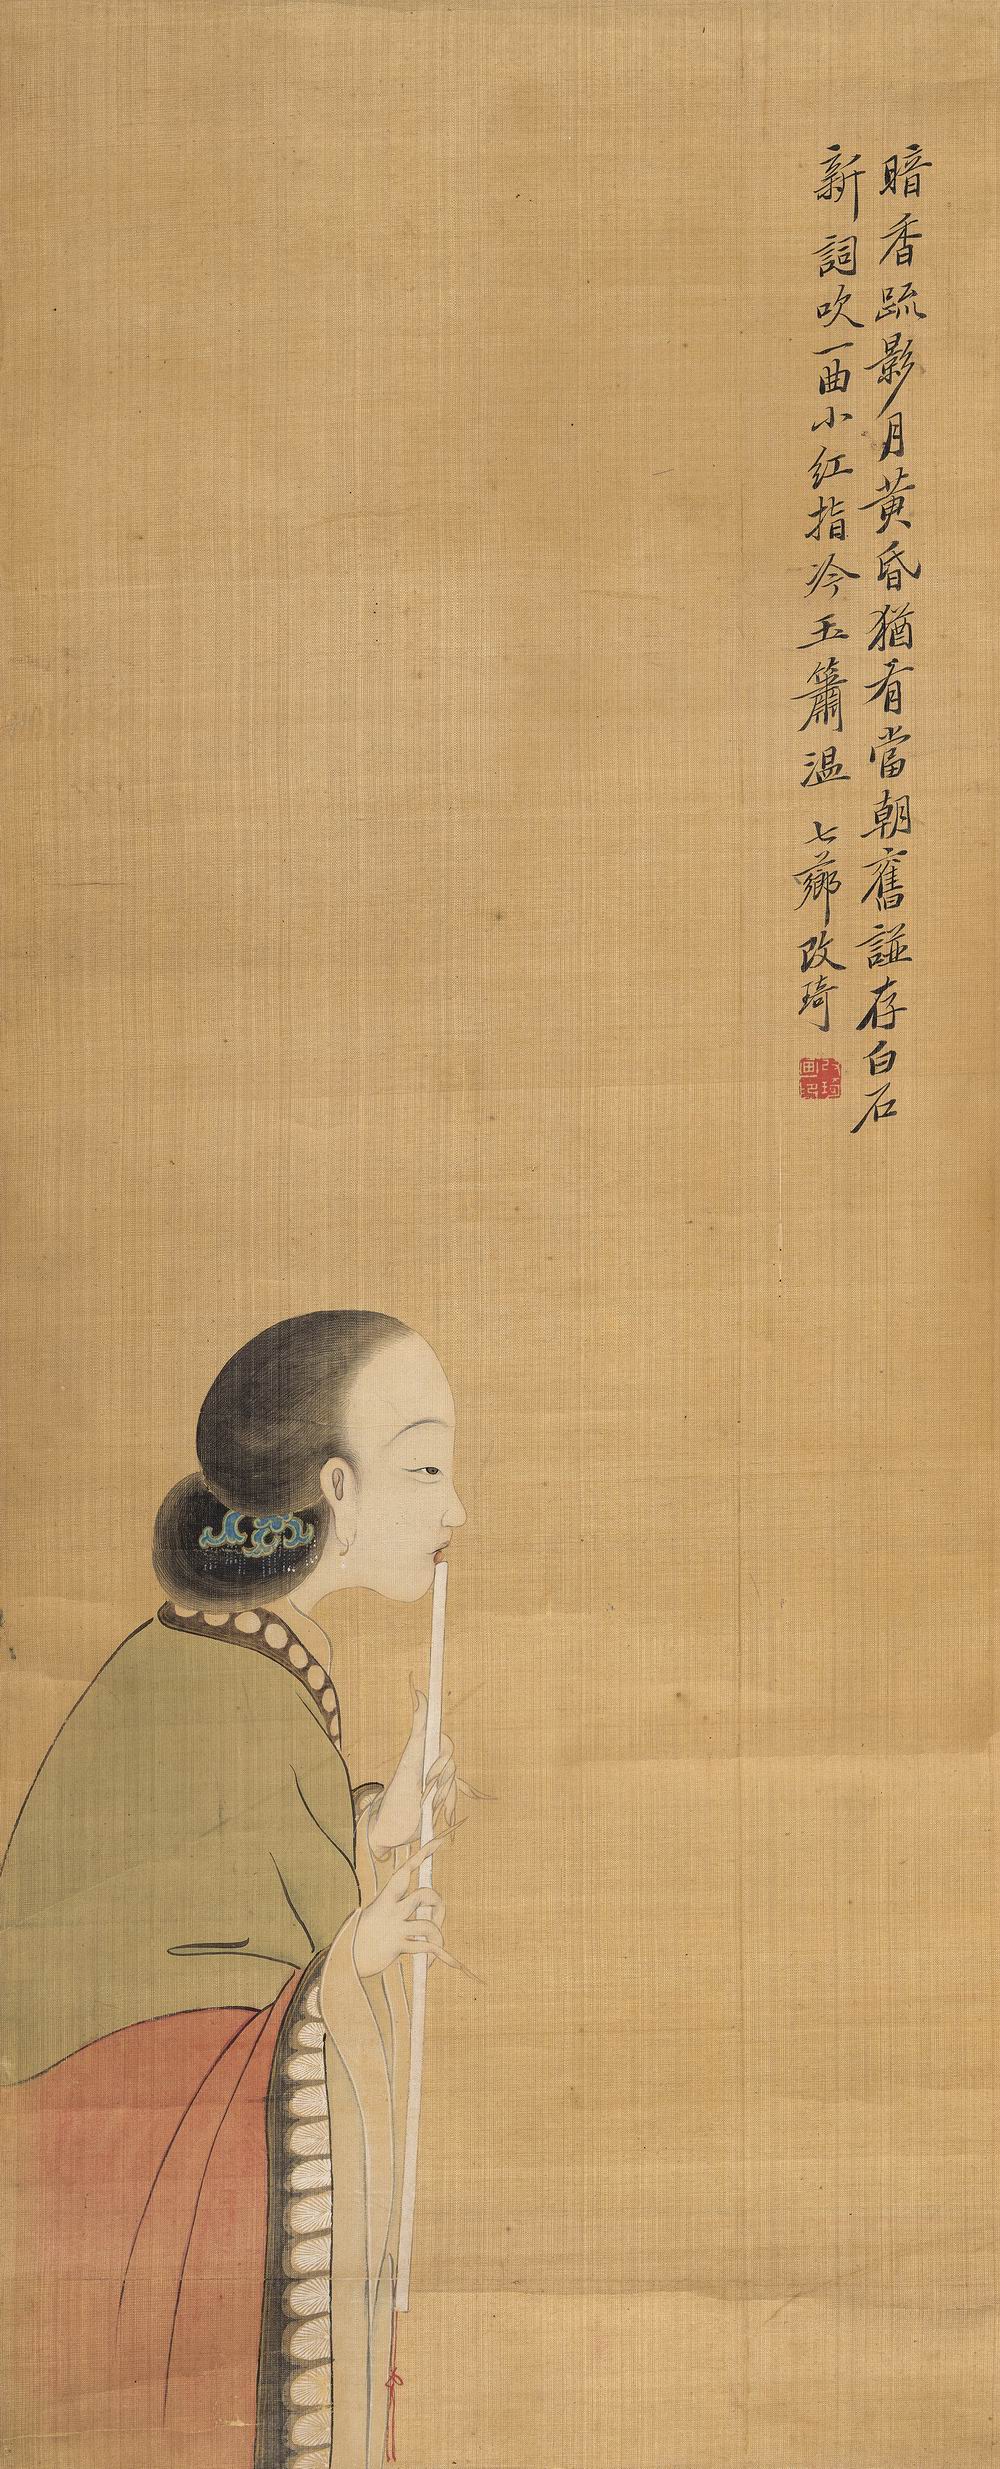 暗香疏影月黃昏猶有當朝舊譜存白石
新詞吹一曲小紅指冷玉簫溫 七薌改琦